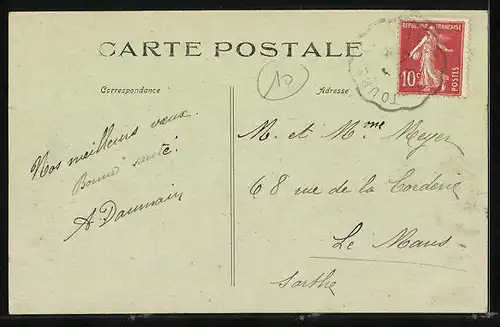 CARTE POSTALE
10
REPUBLIQUE FRANÇAISE
10c
POSTES
TOURS
Correspondance
Adresse
Nos meilleurs voeux.
Bonne santé!
A. Daumain
M. et Mme Meyer
68 rue de la Corderie
Le Mans
Sarthe